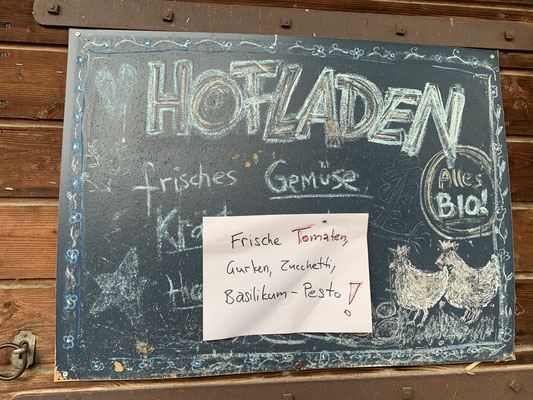 HOFLADEN
frisches Gemüse
Alles
BIO!
Frische Tomaten,
Gurken, Zucchetti,
Basilikum-Pesto!